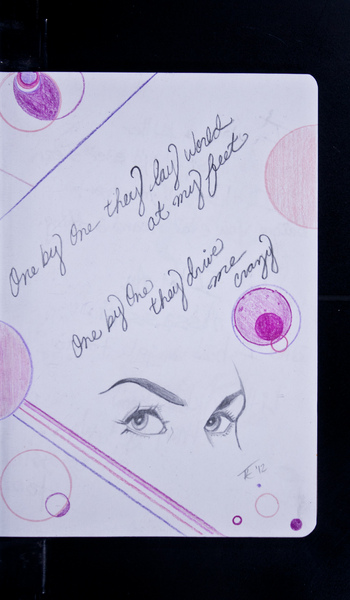 One by One they lay World
at my feet
One by One
they drive
me
crazy
'12